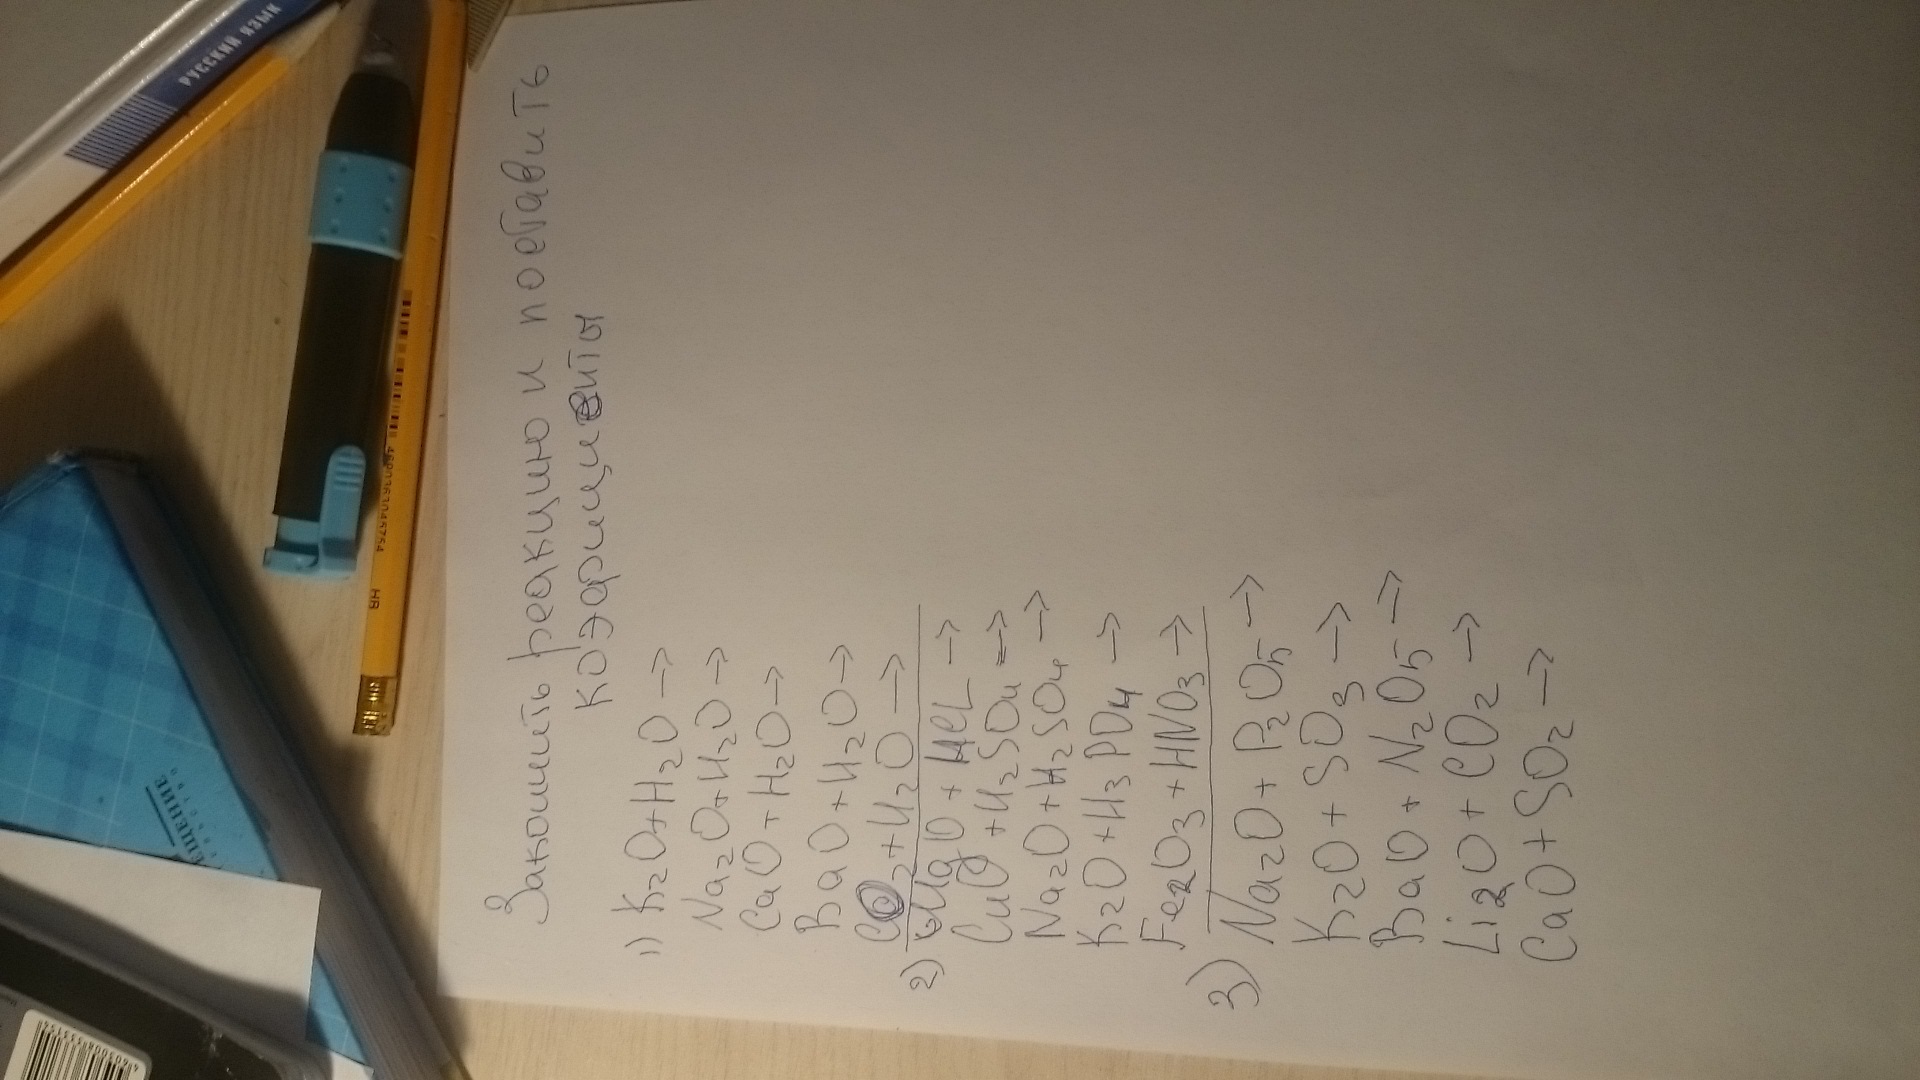 Закончить реакцию и поставить
коэфициенты
1) K₂O+H₂O→
Na₂O+H₂O→
CaO+H₂O→
BaO+H₂O→
CO₂+H₂O→
2) MgO+HCL→
CuO+H₂SO₄→
Na₂O+H₂SO₄→
K₂O+H₃PO₄→
Fe₂O₃+HNO₃→
3) Na₂O+P₂O₅→
K₂O+SO₃→
BaO+N₂O₅→
Li₂O+CO₂→
CaO+SO₂→
РУССКИЙ ЯЗЫК
HB